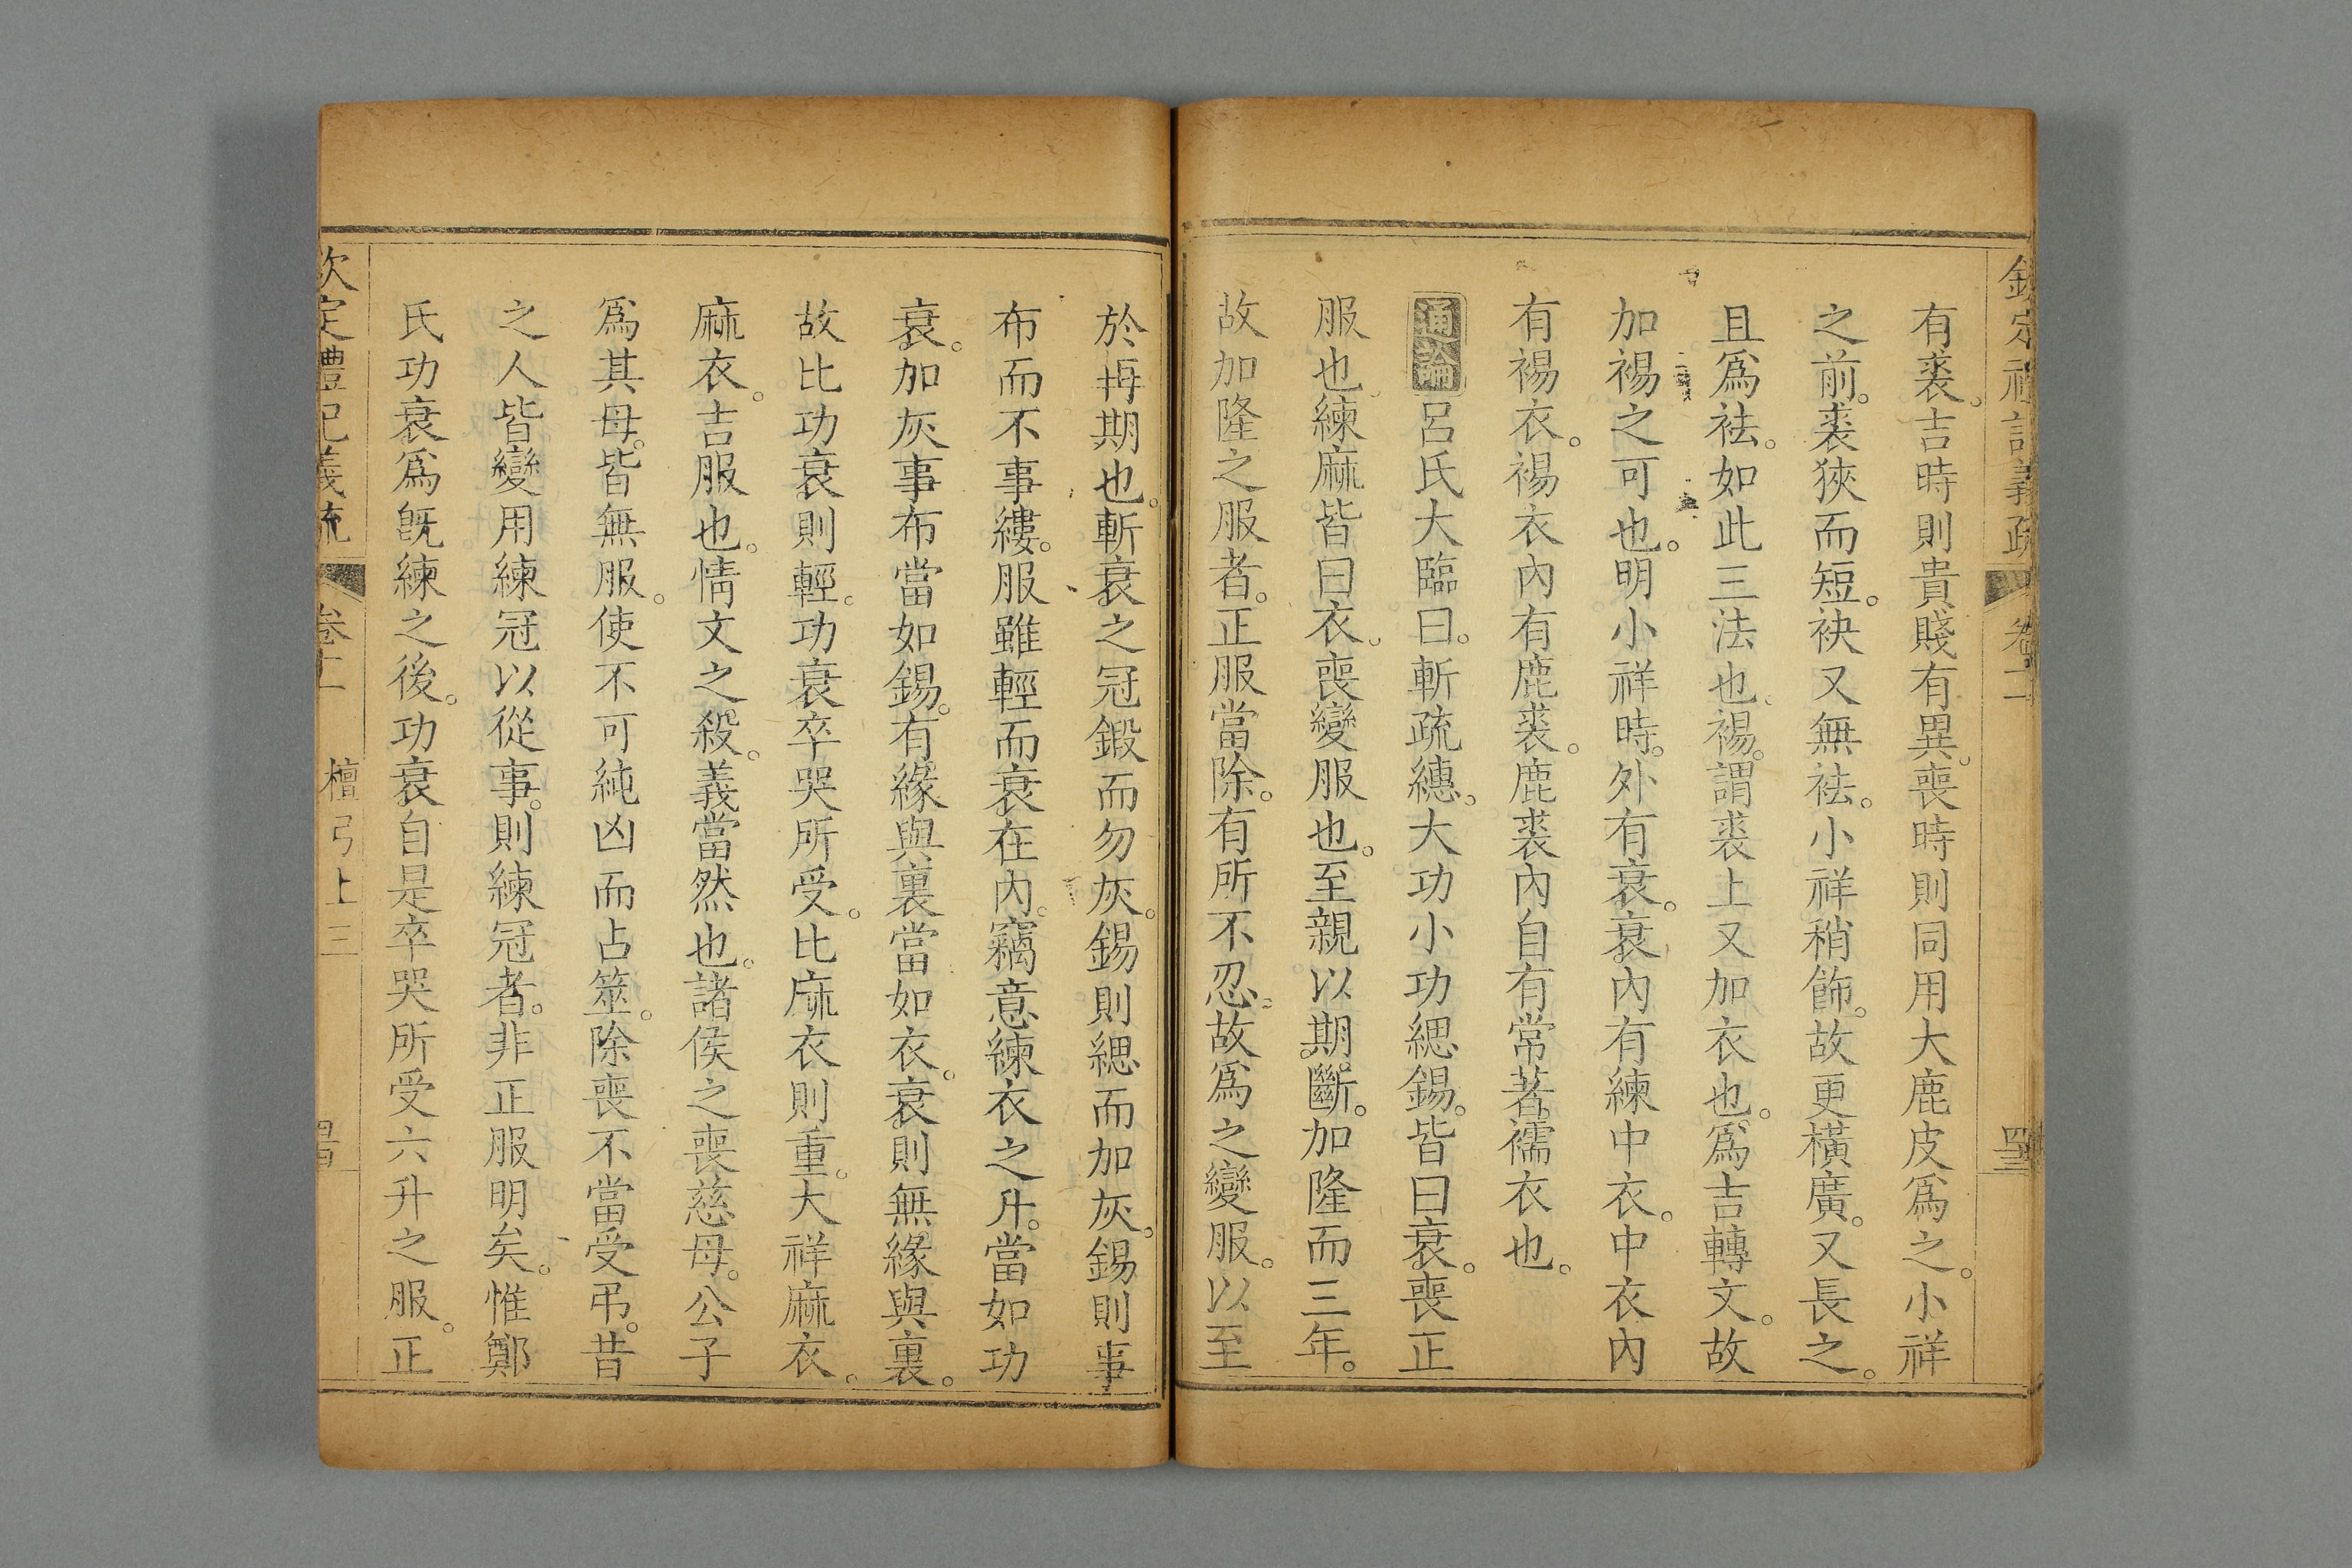 欽定禮記義疏 卷十一
有裘。吉時則貴賤有異。喪時則同用大鹿皮爲之。小祥
之前。裘狹而短。袂又無袪。小祥稍飾。故更橫廣。又長之。
且爲袪。如此三法也。裼。謂裘上又加衣也。爲吉轉文。故
加裼之可也。明小祥時。外有衰。衰內有練中衣。中衣內
有裼衣。裼衣內有鹿裘。鹿裘內自有常著襦衣也。
通論 呂氏大臨曰。斬疏繐。大功小功緦錫。皆曰衰。喪正
服也。練麻皆曰衣。喪變服也。至親以期斷。加隆而三年。
故加隆之服者。正服當除。有所不忍。故爲之變服。以至
於再期也。斬衰之冠鍛而勿灰。錫則緦而加灰。錫則事
布而不事縷。服雖輕而衰在內。竊意練衣之升。當如功
衰。加灰事布當如錫。有緣與裏當如衣。衰則無緣與裏。
故比功衰則輕。功衰卒哭所受。比麻衣則重。大祥麻衣。
麻衣。吉服也。情文之殺。義當然也。諸侯之喪慈母。公子
爲其母。皆無服。使不可純凶而占筮。除喪不當受弔。昔
之人皆變用練冠以從事。則練冠者。非正服明矣。惟鄭
氏功衰爲旣練之後。功衰自是卒哭所受六升之服。正
欽定禮記義疏 卷十一 檀弓上三